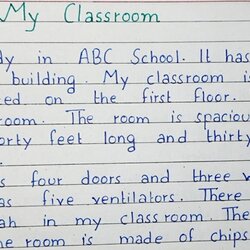 My Classroom
in ABC School. It has
building. My classroom is
on the first floor.
room. The room is spacious
feet long and thirty
four doors and three
five ventilators. There
in my classroom. The
room is made of chips